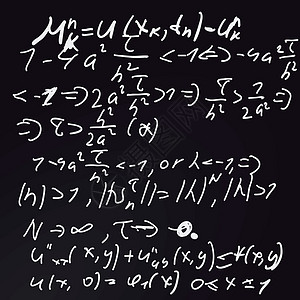 μₖⁿ = u(xₖ, tₙ) - uₖⁿ
1 - 4a² τ/h² < -1 ⇔ -4a² τ/h²
< -1 ⇒ 2a² τ/h² > 1 ⇒ τ/h² > 1/2a² ⇒
⇒ τ > h²/2a² (α)
1 - 4a² τ/h² < -1, or λ < -1, ⇒
|λ| > 1, |λ|ᴺ = |λ|ᴺ, |λ| > 1
N → ∞, τ → 0.
u''ₓₓ(x, y) + u''ᵧᵧ(x, y) ≤ Ψ(x, y)
u(x, 0) = φ₁(x) 0 ≤ x ≤ 1